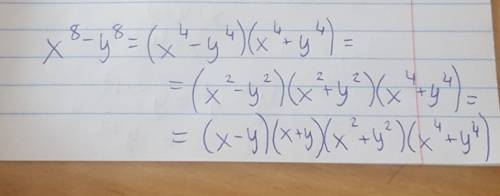 x⁸-y⁸=(x⁴-y⁴)(x⁴+y⁴)=
=(x²-y²)(x²+y²)(x⁴+y⁴)=
=(x-y)(x+y)(x²+y²)(x⁴+y⁴)